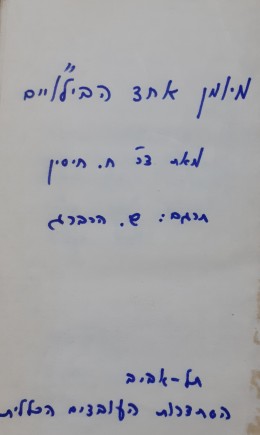 מיומן אחד הביל״ויים
מאת ד״ר ח. חיסין
תרגם: ש. הרברג
תל-אביב
הסתדרות העובדים הכללית